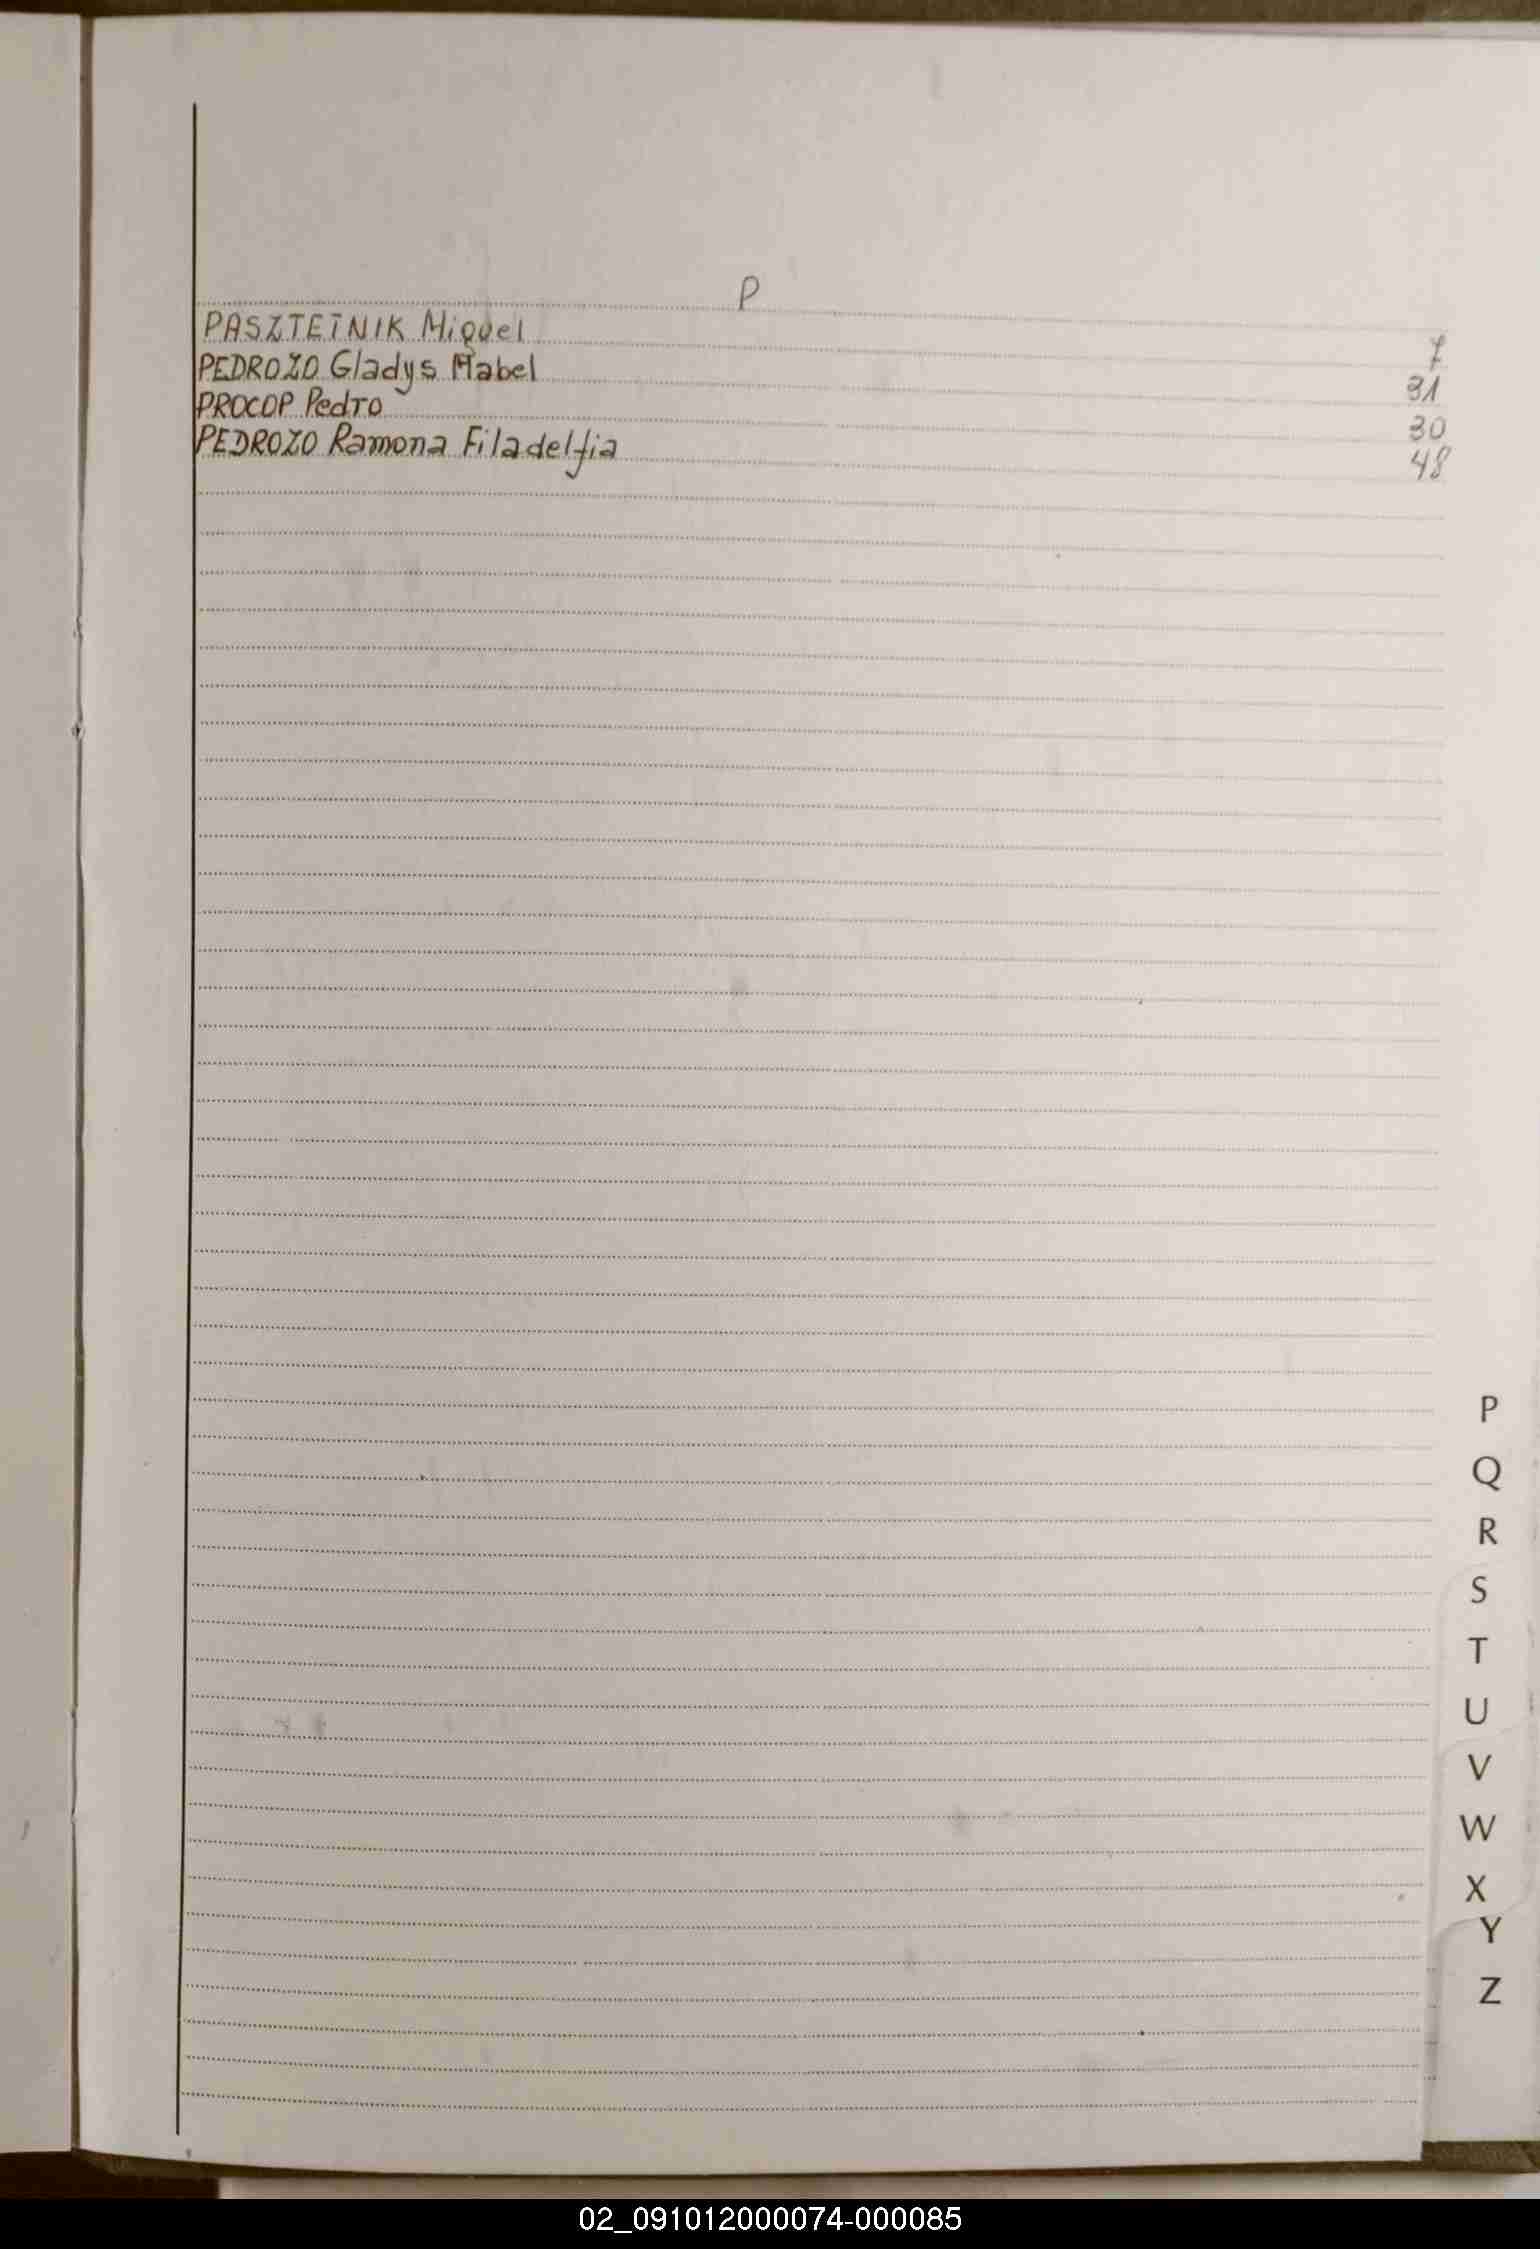 P
PASZTETNIK Miguel 7
PEDROZO Gladys Mabel 31
PROCOP Pedro 30
PEDROZO Ramona Filadelfia 48
P
Q
R
S
T
U
V
W
X
Y
Z
02_091012000074-000085